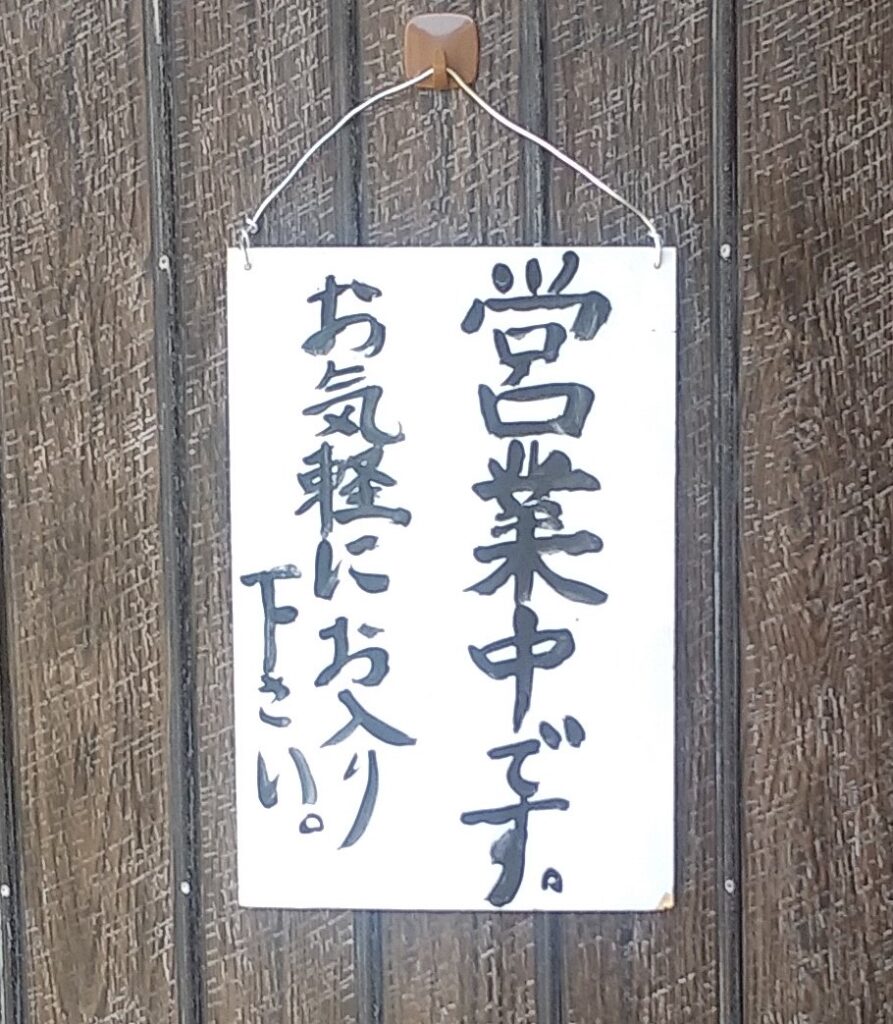 営業中です。
お気軽にお入り
下さい。